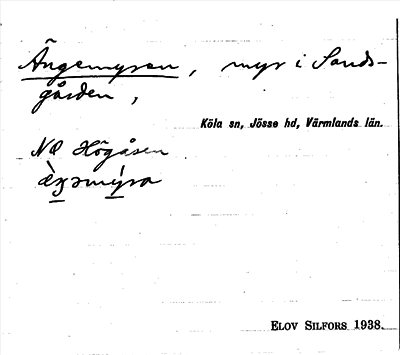 Ängemyran, myr i Sands-
gården,
Köla sn, Jösse hd, Värmlands län.
NO Högåsen
ELOV SILFORS 1938.